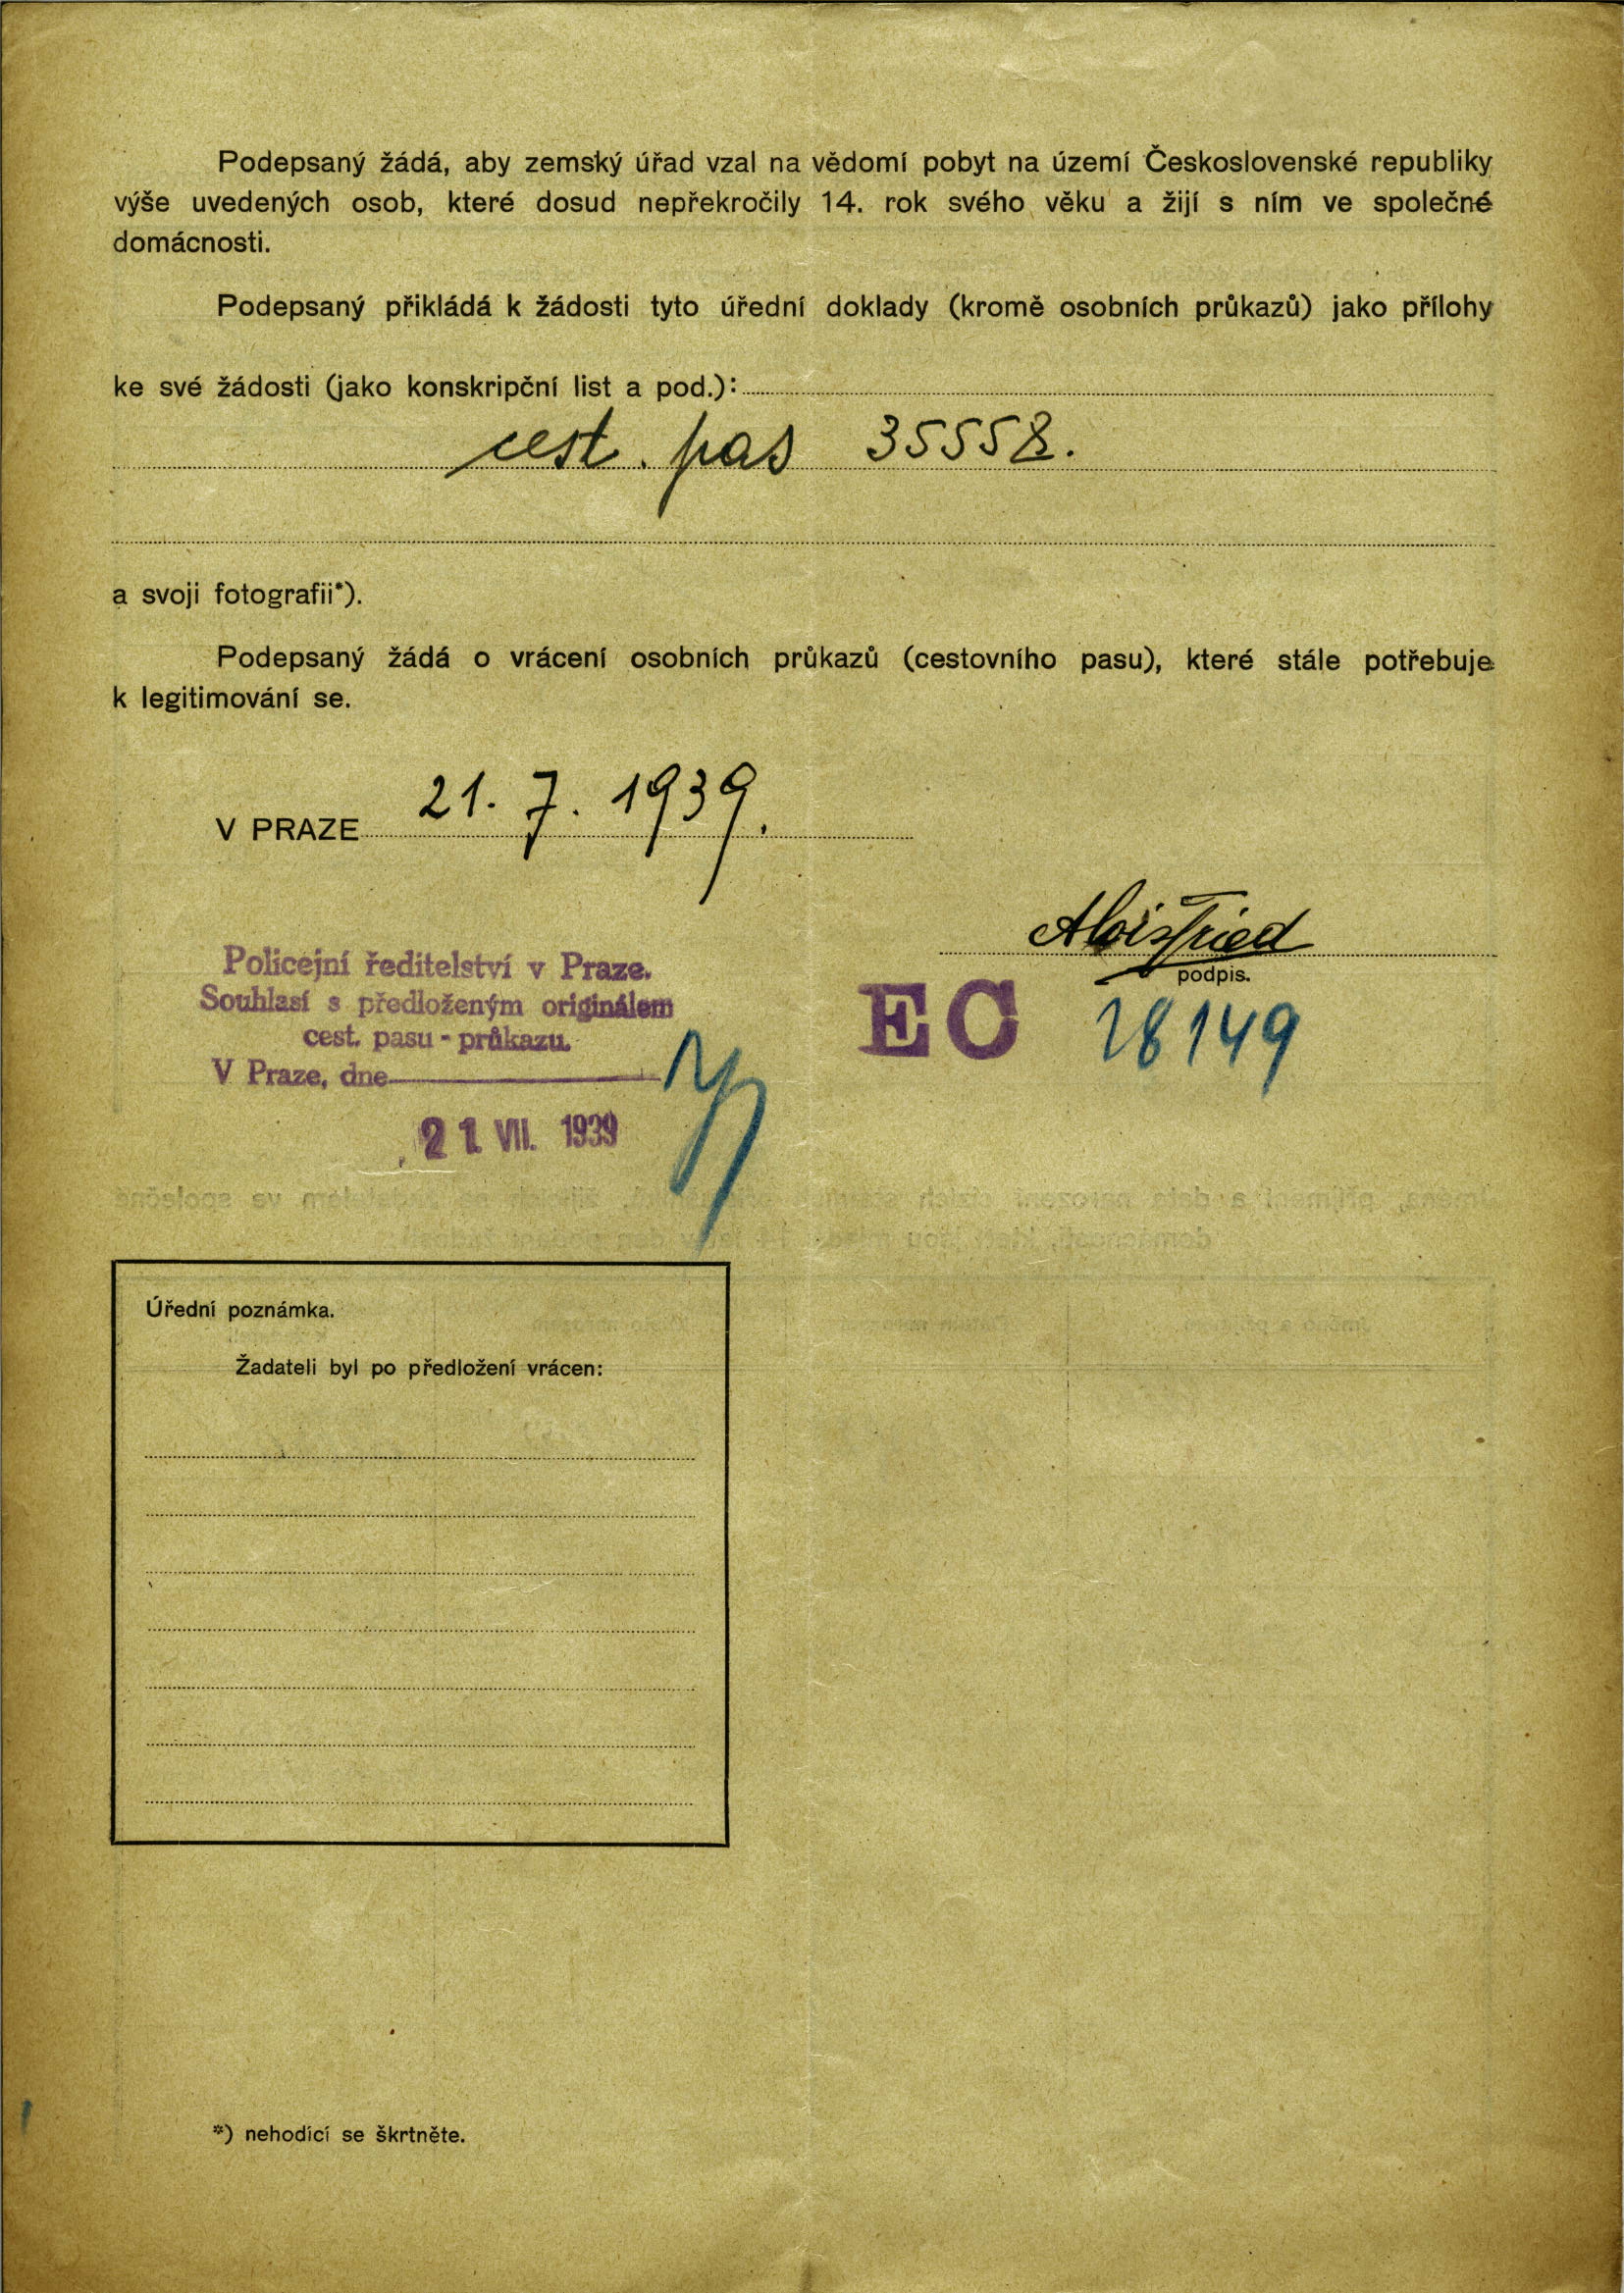 Podepsaný žádá, aby zemský úřad vzal na vědomí pobyt na území Československé republiky
výše uvedených osob, které dosud nepřekročily 14. rok svého věku a žijí s ním ve společné
domácnosti.
Podepsaný přikládá k žádosti tyto úřední doklady (kromě osobních průkazů) jako přílohy
ke své žádosti (jako konskripční list a pod.):
cest. pas 35558.
a svoji fotografii*).
Podepsaný žádá o vrácení osobních průkazů (cestovního pasu), které stále potřebuje
k legitimování se.
V PRAZE 21. 7. 1939.
Alois Fried
podpis.
Policejní ředitelství v Praze.
Souhlasí s předloženým originálem
cest. pasu - průkazu.
V Praze, dne
21. VII. 1939
EC 28149
Úřední poznámka.
Žadateli byl po předložení vrácen:
*) nehodící se škrtněte.